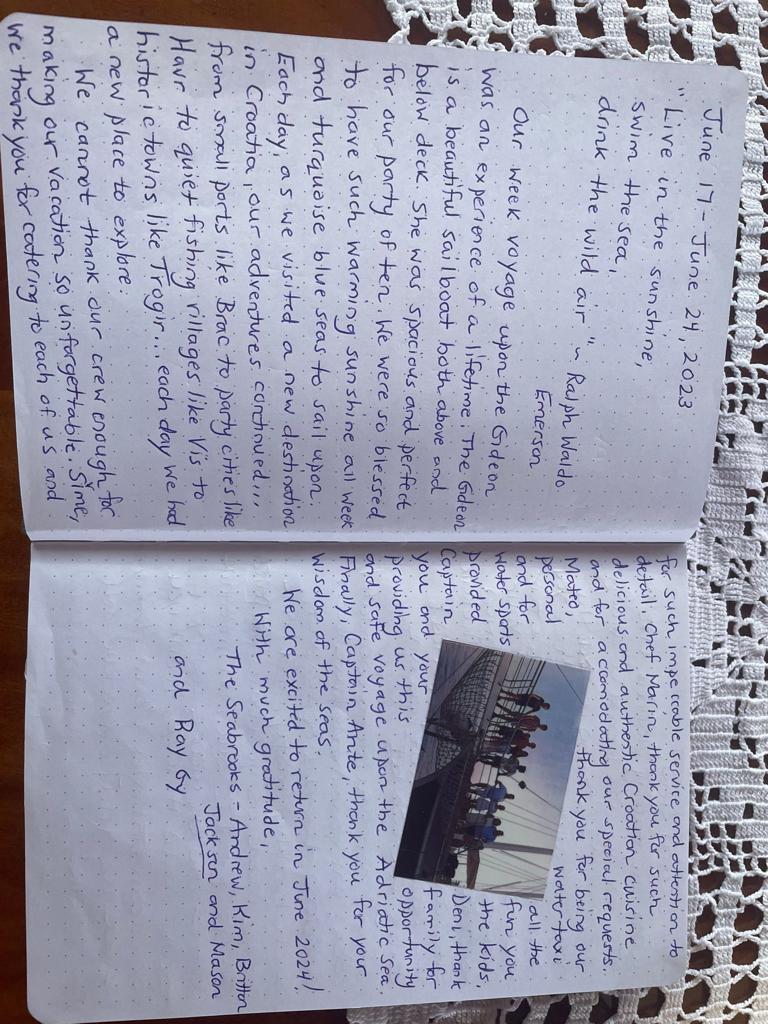 June 17 - June 24, 2023
"Live in the sunshine,
swim the sea,
drink the wild air" ~ Ralph Waldo
Emerson
Our week voyage upon the Gideon
was an experience of a lifetime. The Gideon
is a beautiful sailboat both above and
below deck. She was spacious and perfect
for our party of ten. We were so blessed
to have such warming sunshine all week
and turquoise blue seas to sail upon.
Each day, as we visited a new destination
in Croatia, our adventures continued...
from small ports like Brac to party cities like
Havr to quiet fishing villages like Vis to
historic towns like Trogir... each day we had
a new place to explore
We cannot thank our crew enough for
making our vacation so unforgettable. Šime,
we thank you for catering to each of us and
for such impeccable service and attention to
detail. Chef Marin, thank you for such
delicious and authentic Croatian cuisine
and for accomodating our special requests.
Mato, thank you for being our
personal water taxi
and for all the
water sports fun you
provided the kids.
Captain Deni, thank
you and your family for
providing us this opportunity
and safe voyage upon the Adriatic Sea.
Finally, Captain Ante, thank you for your
wisdom of the seas.
We are excited to return in June 2024!
With much gratitude,
The Seabrooks - Andrew, Kim, Britton
Jackson and Mason
and Ray Gy